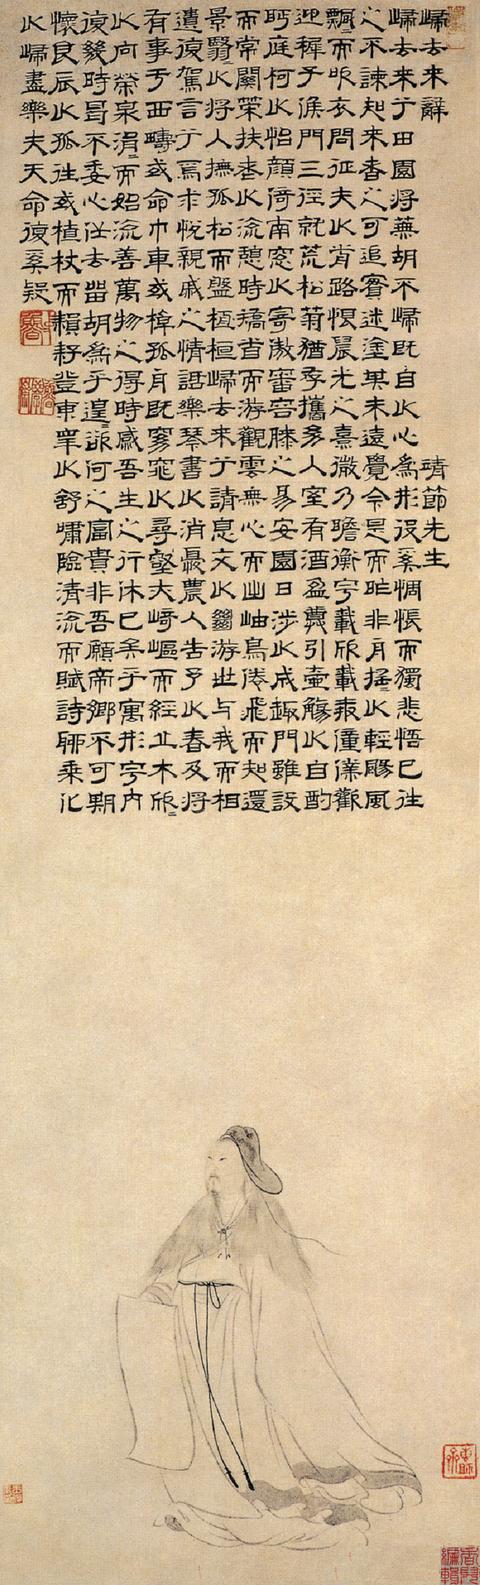 歸去來辭
靖節先生
歸去來兮田園將蕪胡不歸既自以心為形役奚惆悵而獨悲悟已往
之不諫知來者之可追實迷塗其未遠覺今是而昨非舟搖〻以輕颺風
飄〻而吹衣問征夫以前路恨晨光之熹微乃瞻衡宇載欣載奔僮僕歡
迎稚子候門三徑就荒松菊猶存攜幼入室有酒盈樽引壺觴以自酌
眄庭柯以怡顏倚南窗以寄傲審容膝之易安園日涉以成趣門雖設
而常關策扶老以流憩時矯首而游觀雲無心而出岫鳥倦飛而知還
景翳〻以將入撫孤松而盤桓歸去來兮請息交以絕游世與我而相
遺復駕言兮焉求悅親戚之情話樂琴書以消憂農人告予以春及將
有事乎西疇或命巾車或棹孤舟既窈窕以尋壑亦崎嶇而經丘木欣〻
以向榮泉涓〻而始流善萬物之得時感吾生之行休已矣乎寓形宇內
復幾時曷不委心任去留胡為乎遑〻欲何之富貴非吾願帝鄉不可期
懷良辰以孤往或植杖而耘耔登東皋以舒嘯臨清流而賦詩聊乘化
以歸盡樂夫天命復奚疑